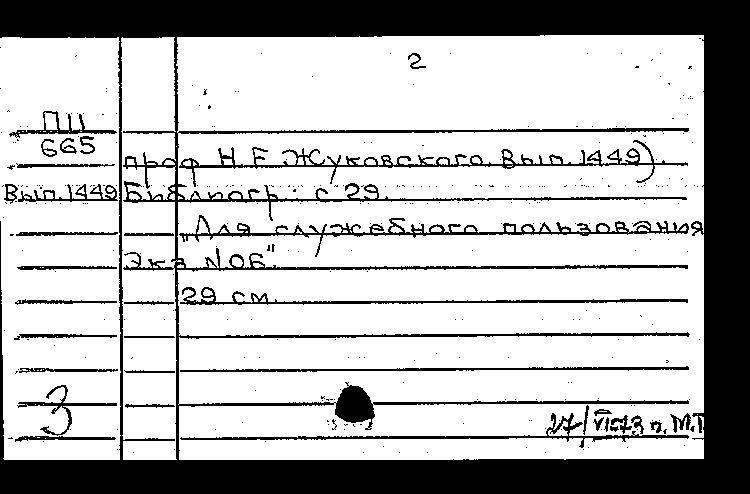 2
П11
665
проф Н.Е.Жуковского. Вып. 1449).
Вып. 1449 Библиогр: с 29.
"Для служебного пользования
Экз N06".
29 см.
3
27/VI-73 г. М.П